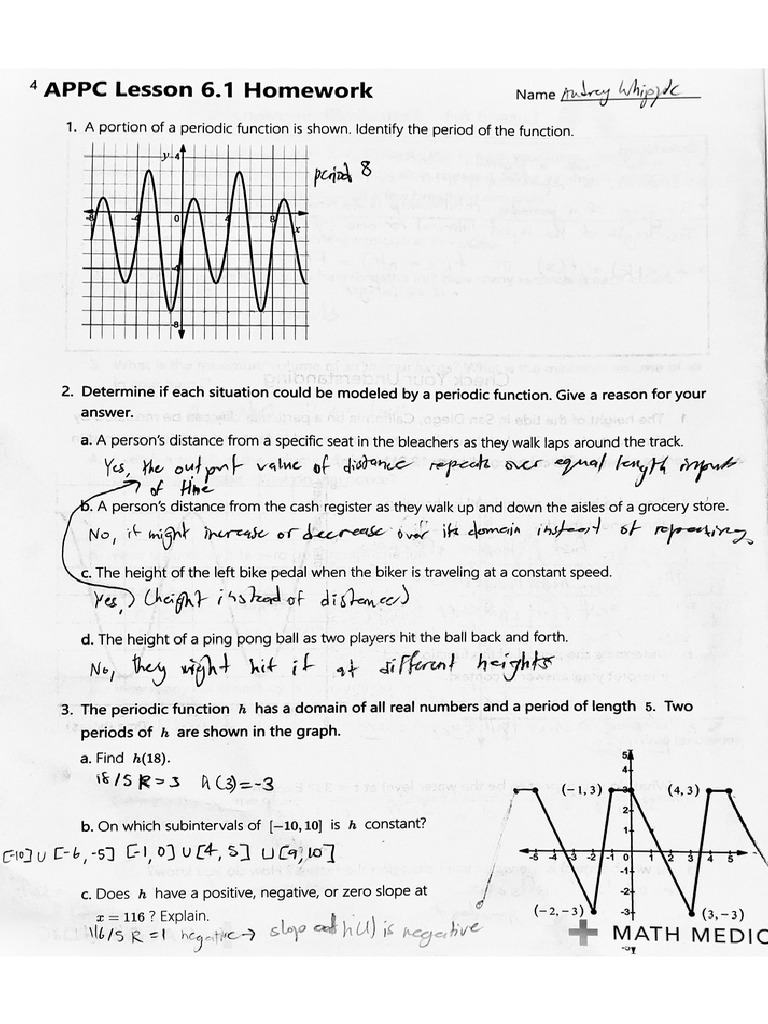 4 APPC Lesson 6.1 Homework
Name Audrey
1. A portion of a periodic function is shown. Identify the period of the function.
y 4
period 8
-8 -4 0 4 8 x
-4
-8
Check Your Understanding
2. Determine if each situation could be modeled by a periodic function. Give a reason for your
answer.
a. A person's distance from a specific seat in the bleachers as they walk laps around the track.
Yes, the outpunt value of distance repeats over equal length inputs
of time
b. A person's distance from the cash register as they walk up and down the aisles of a grocery store.
No, it might increase or decrease over its domain instead of repeating
c. The height of the left bike pedal when the biker is traveling at a constant speed.
Yes, (height instead of distance)
d. The height of a ping pong ball as two players hit the ball back and forth.
No, they might hit it at different heights
3. The periodic function h has a domain of all real numbers and a period of length 5. Two
periods of h are shown in the graph.
a. Find h(18).
18/5 R=3 h(3)=-3
b. On which subintervals of [-10,10] is h constant?
[-10] ∪ [-6,-5] [-1,0] ∪ [4,5] ∪ [9,10]
c. Does h have a positive, negative, or zero slope at
x = 116? Explain.
116/5 R=1 negative → slope h(1) is negative
5
4
(-1,3) 3 (4,3)
2
1
-5 -4 -3 -2 -1 0 1 2 3 4 5
-1
-2
(-2,-3) -3 (3,-3)
MATH MEDIC